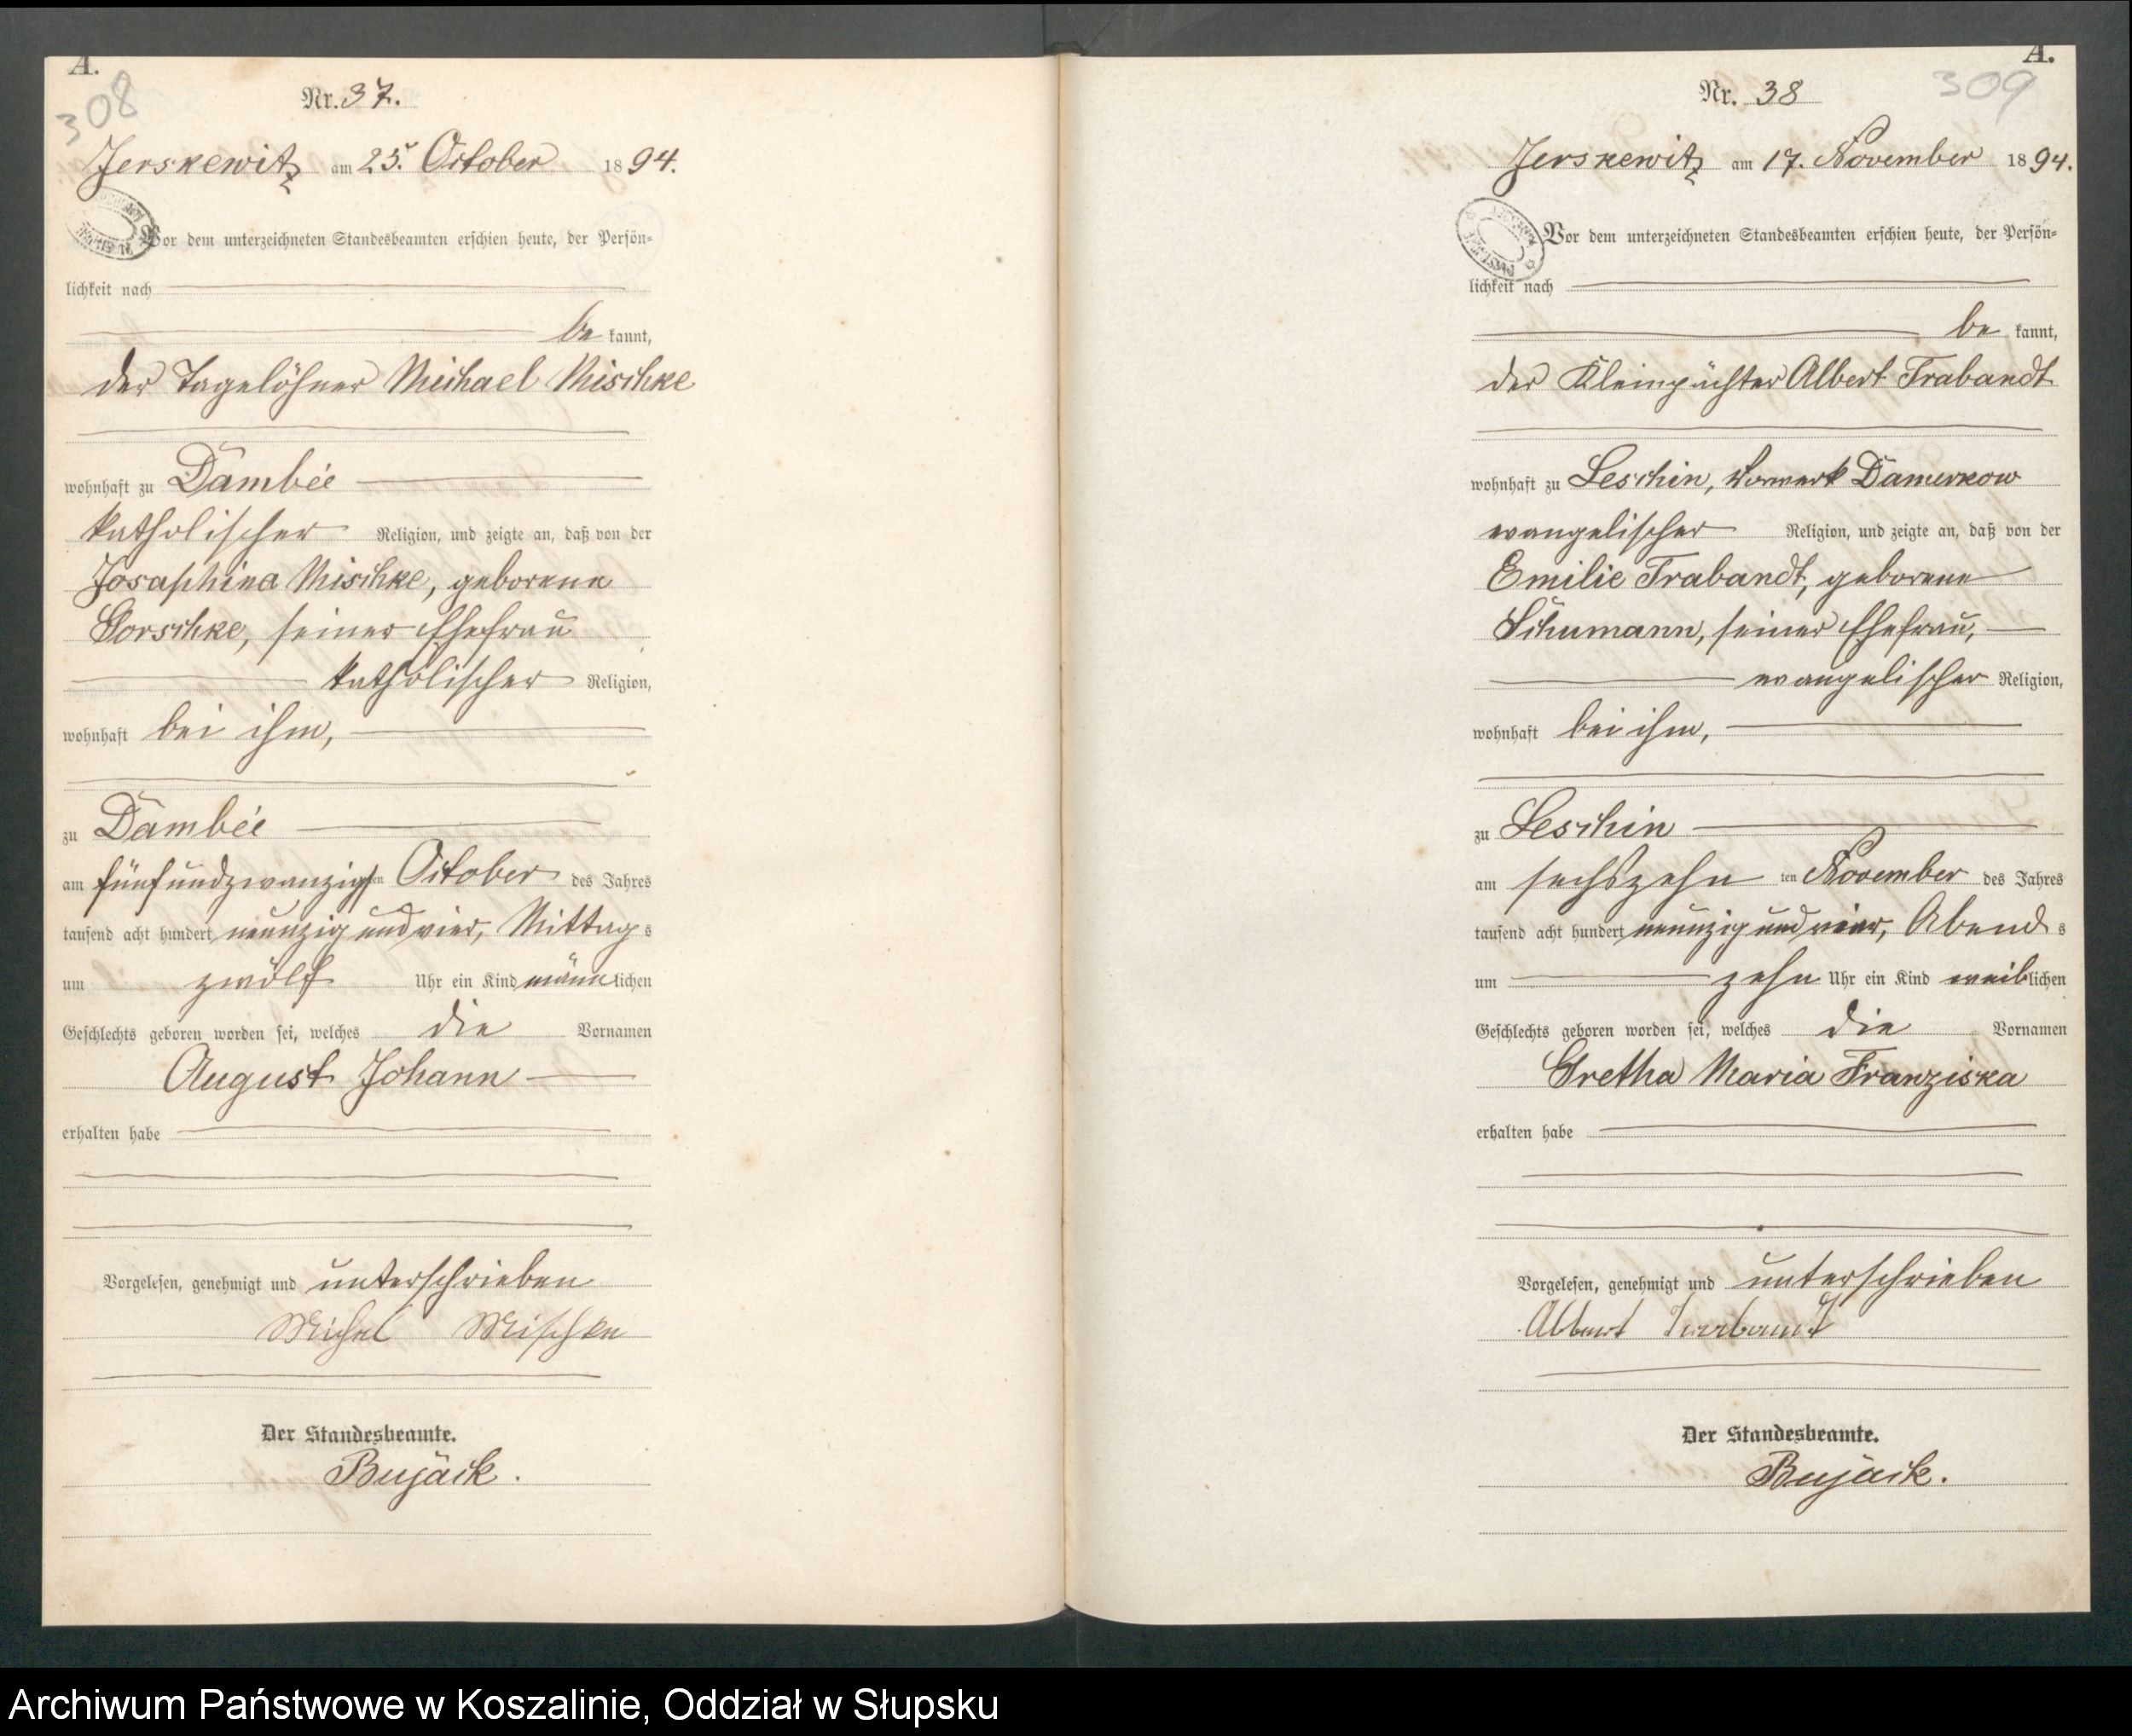 A.
308
Nr. 37.
Jerskewitz am 25. October 1894.
Vor dem unterzeichneten Standesbeamten erschien heute, der Persön-
lichkeit nach
be kannt,
der Tagelöhner Michael Mischke
wohnhaft zu Dambée
katholischer Religion, und zeigte an, daß von der
Josephine Mischke, geborene
Gorschke, seiner Ehefrau
katholischer Religion,
wohnhaft bei ihm,
zu Dambée
am fünfundzwanzigsten October des Jahres
tausend acht hundert neunzig und vier, Mittags
um zwölf Uhr ein Kind männlichen
Geschlechts geboren worden sei, welches die Vornamen
August Johann
erhalten habe
Vorgelesen, genehmigt und unterschrieben
Michel Mischke
Der Standesbeamte.
Bujäck.
A.
309
Nr. 38
Jerskewitz am 17. November 1894.
Vor dem unterzeichneten Standesbeamten erschien heute, der Persön-
lichkeit nach
be kannt,
der Kleinpächter Albert Trabandt
wohnhaft zu Leschin, Vorwerk Damerkow
evangelischer Religion, und zeigte an, daß von der
Emilie Trabandt, geborene
Schumann, seiner Ehefrau,
evangelischer Religion,
wohnhaft bei ihm,
zu Leschin
am sechszehn ten November des Jahres
tausend acht hundert neunzig und vier, Abends
um zehn Uhr ein Kind weiblichen
Geschlechts geboren worden sei, welches die Vornamen
Gretha Maria Franziska
erhalten habe
Vorgelesen, genehmigt und unterschrieben
Albert Trabandt
Der Standesbeamte.
Bujäck.
Archiwum Państwowe w Koszalinie, Oddział w Słupsku